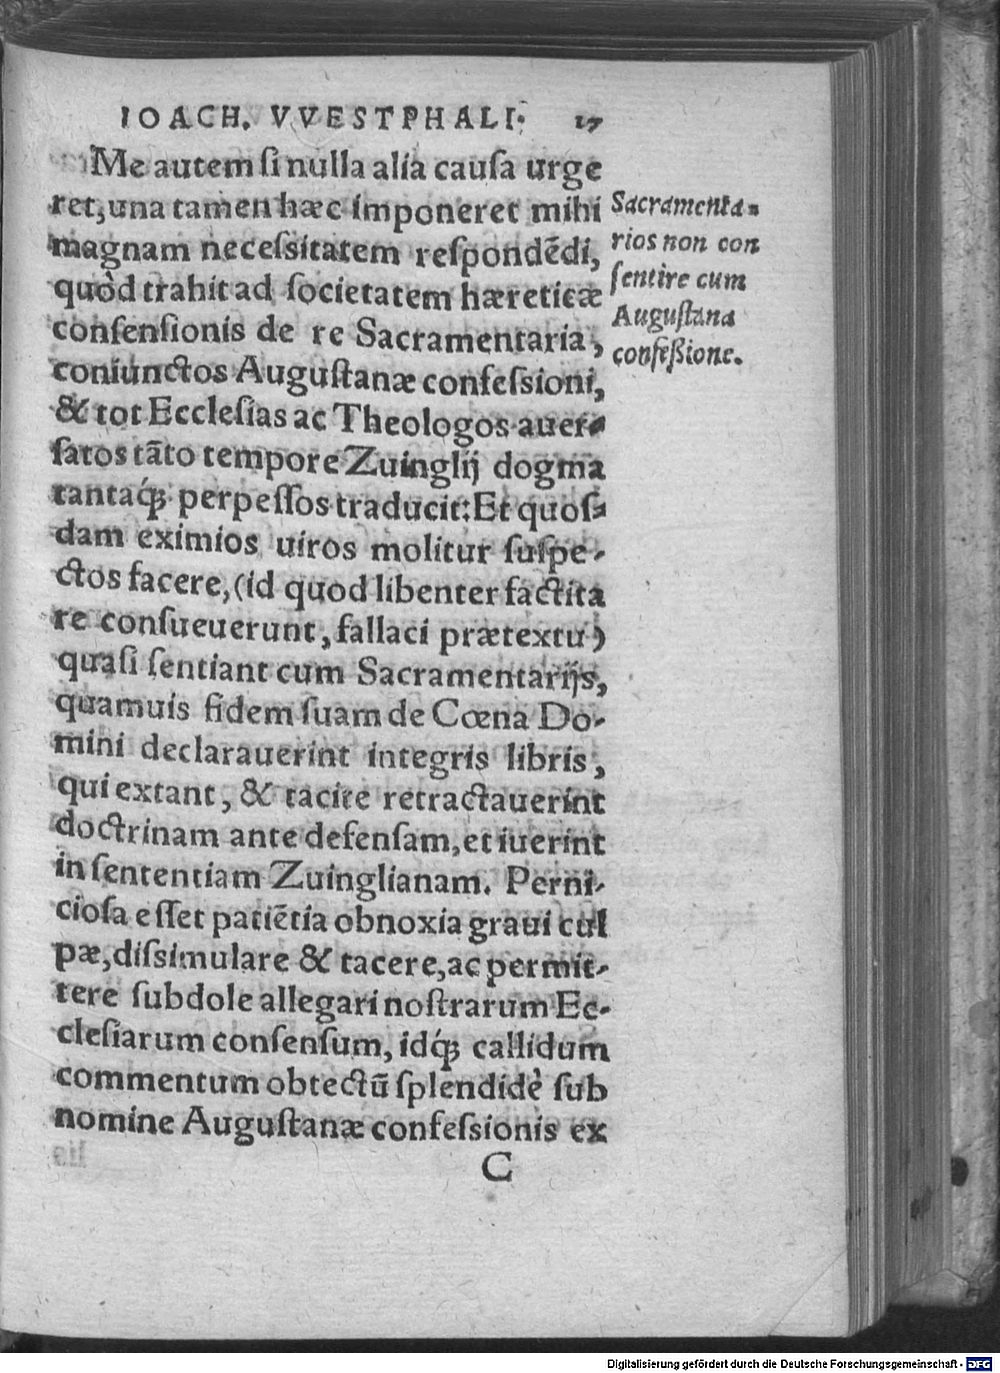 IOACH. VVESTPHALI. 17
Me autem ſi nulla alia cauſa urge
ret, una tamen hæc imponeret mihi
magnam neceſsitatem reſpondẽdi,
quòd trahit ad ſocietatem hæreticæ
conſenſionis de re Sacramentaria,
coniunctos Auguſtanæ confeſsioni,
& tot Eccleſias ac Theologos auer-
ſatos tãto tempore Zuinglij dogma
tantaq́; perpeſſos traducit: Et quoſ-
dam eximios uiros molitur ſuſpe-
ctos facere, (id quod libenter factita
re conſueuerunt, fallaci prætextu)
quaſi ſentiant cum Sacramentarijs,
quamuis fidem ſuam de Cœna Do-
mini declarauerint integris libris,
qui extant, & tacite retractauerint
doctrinam ante defenſam, et iuerint
in ſententiam Zuinglianam. Perni-
cioſa eſſet patiẽtia obnoxia graui cul
pæ, diſsimulare & tacere, ac permit-
tere ſubdole allegari noſtrarum Ec-
cleſiarum conſenſum, idq́; callidum
commentum obtectũ ſplendidè ſub
nomine Auguſtanæ confeſsionis ex
C
Sacramenta-
rios non con
ſentire cum
Auguſtana
confeßione.
Digitalisierung gefördert durch die Deutsche Forschungsgemeinschaft - DFG